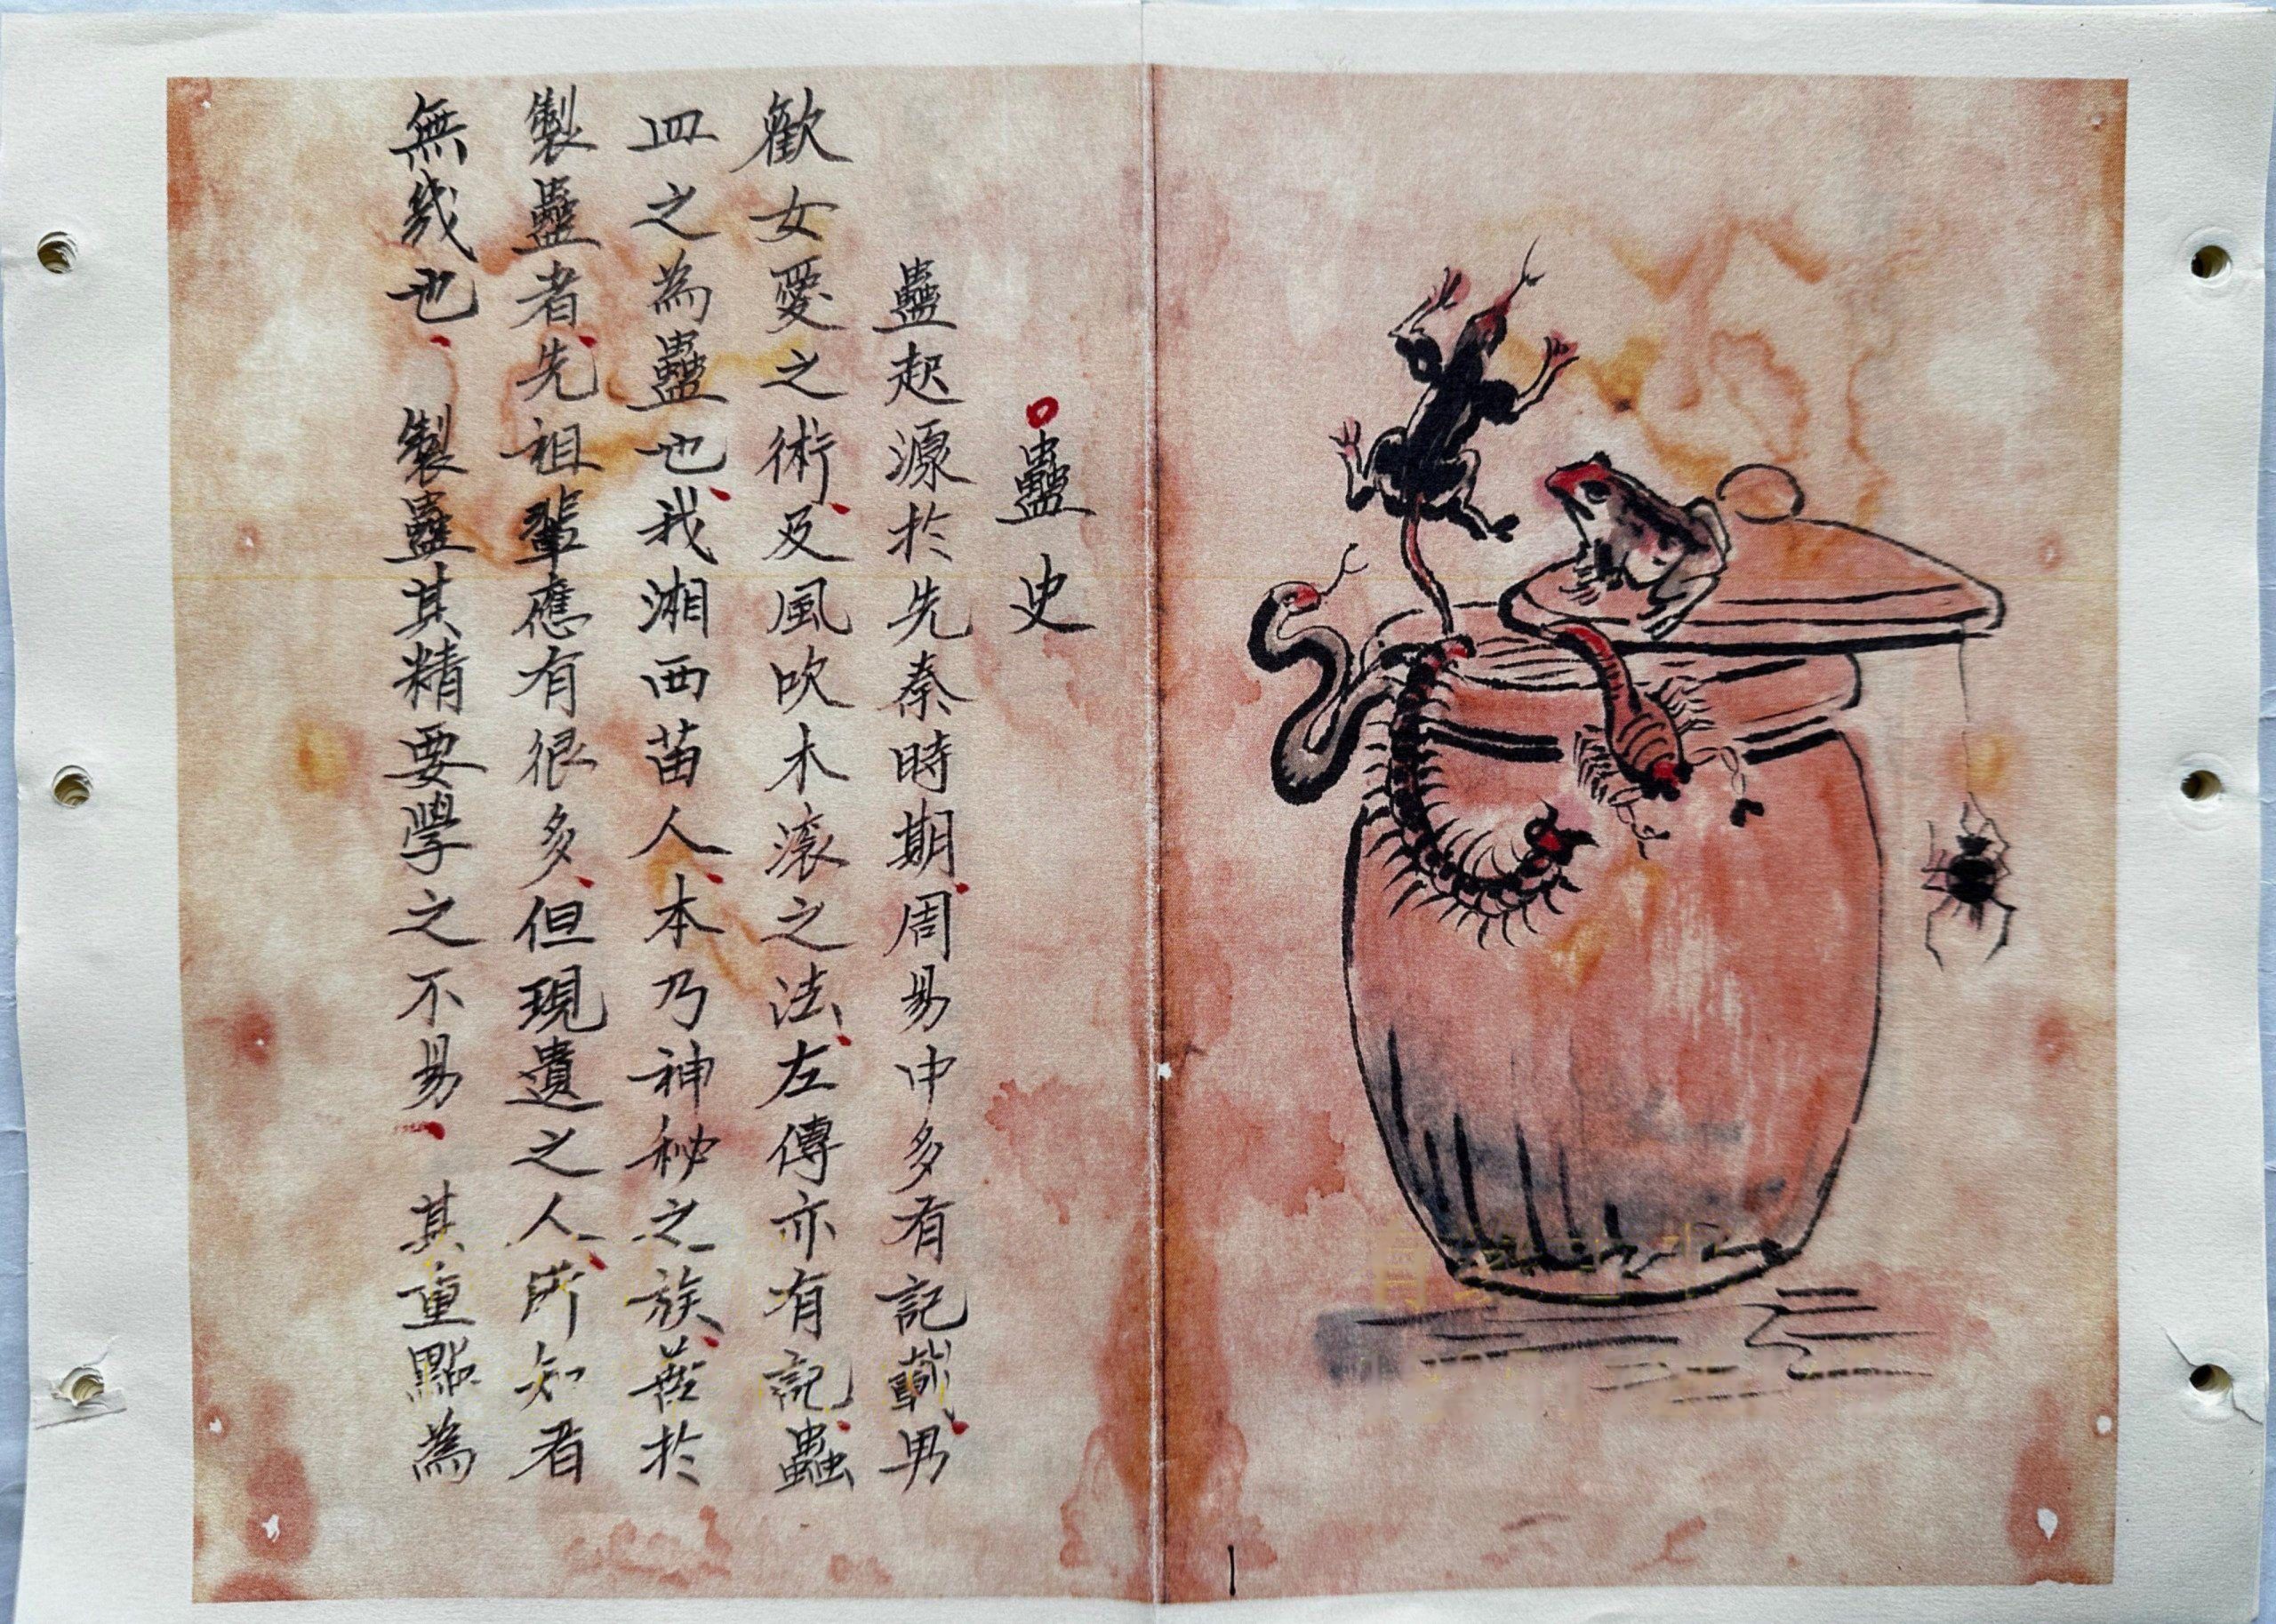 蠱史
蠱起源於先秦時期周易中多有記載男
歡女愛之術及風吹木滾之法左傳亦有記蟲
皿之為蠱也我湘西苗人本乃神秘之族善於
製蠱者先祖輩應有很多但現遺之人所知者
無幾也製蠱其精要學之不易其重點為
1